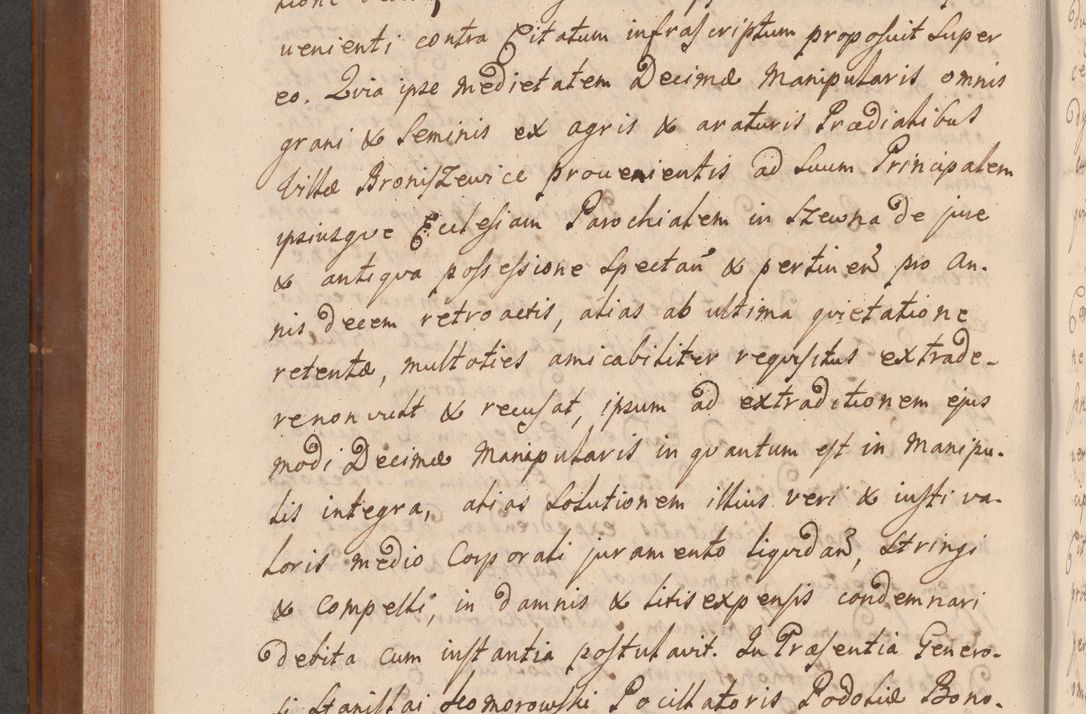 uenienti contra Citatum infrascriptum proposuit Super
eo. Qvia ipse medietatem Decimæ Manipularis omnis
grani & Seminis ex agris & araturis Prædialibus
Villæ Broniszewice prouenientis ad Suum Principalem
ipsiusqve Ecclesiam Parochialem in Szewna de jure
& antiqva possessione Spectan & pertinen pro An-
nis decem retroactis, alias ab ultima qvietatione
retentæ, multoties amicabiliter reqvisitus extrade-
re non vult & recusat, ipsum ad extraditionem ejus
modi Decimæ Manipularis in qvantum est in Manipu-
lis integra, alias Solutionem illius veri & iusti va-
loris medio Corporali juramento liqvidan, Stringi
& compelli, in damnis & litis expensis condemnari
debita cum instantia postulavit. In Præsentia Genero-
si Stanislai Komorowski Pocillatoris Podoliæ Bono-